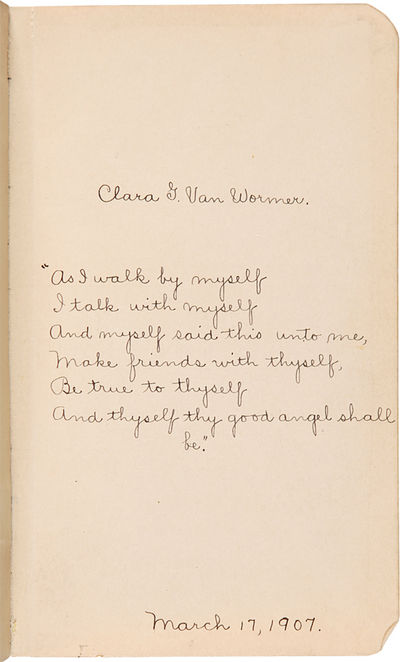 Clara G. Van Wormer.
"As I walk by myself
I talk with myself
And myself said this unto me,
Make friends with thyself,
Be true to thyself
And thyself thy good angel shall
be."
March 17, 1907.